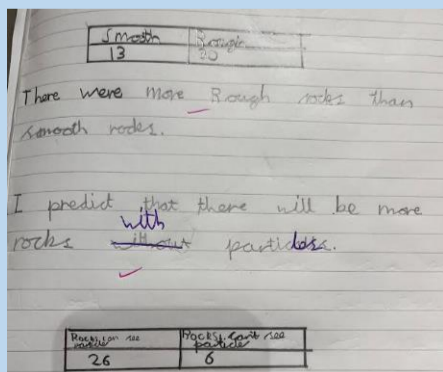 Smooth Rough
13 20
There were more Rough rocks than
smooth rocks.
I predict that there will be more
with
rocks without particles.
Rocks can see particle Rocks can't see particle
26 6